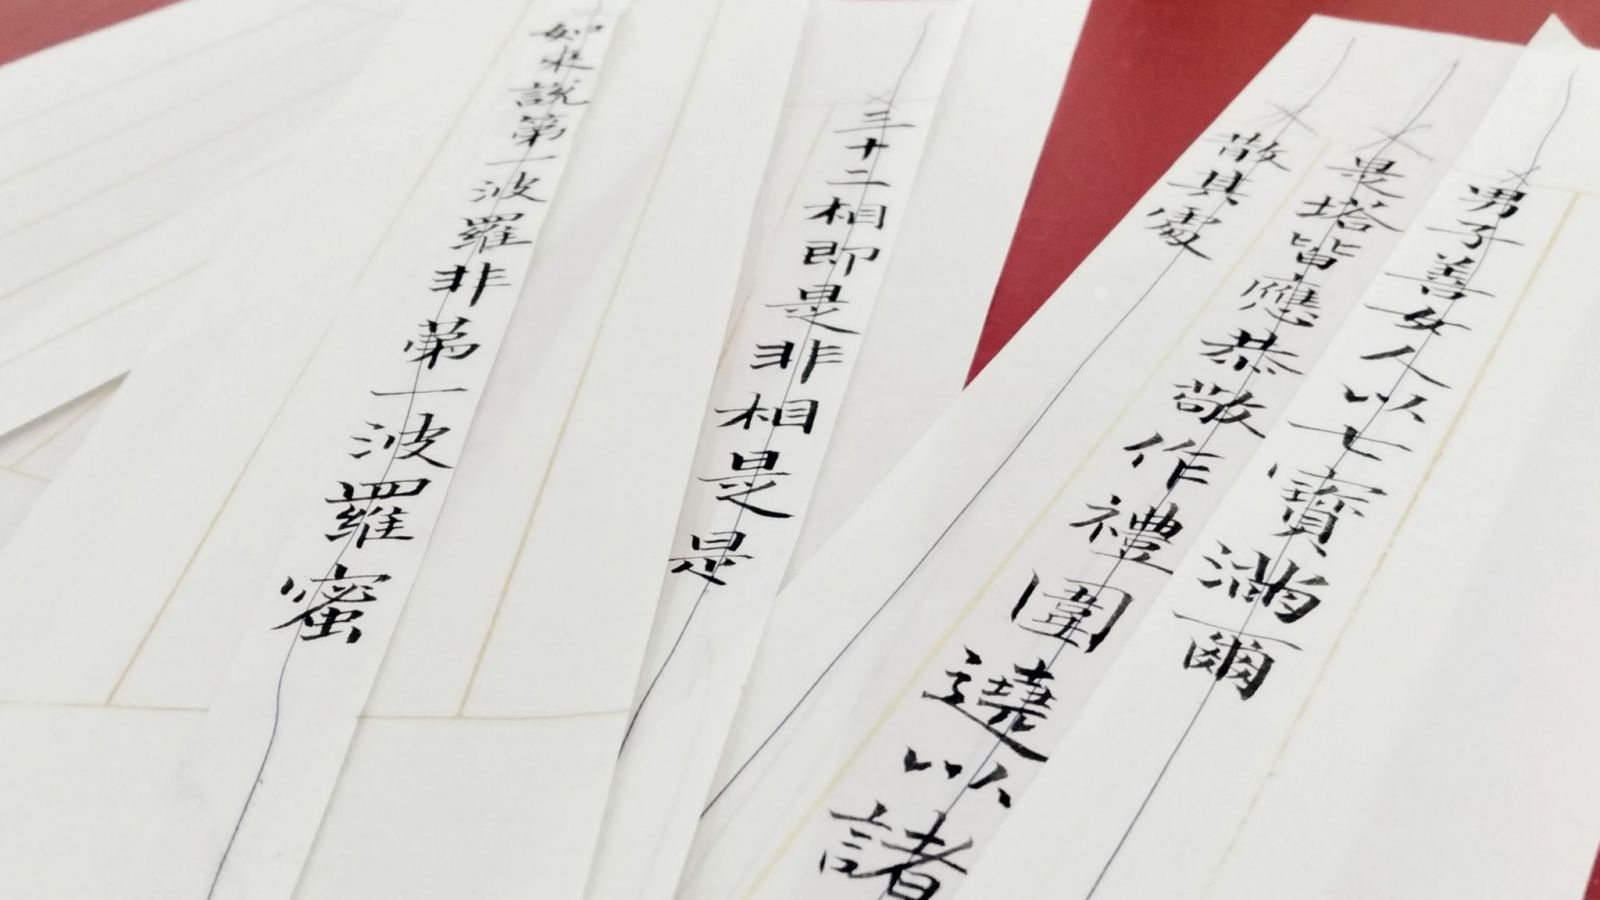 男子善女人以七寶滿爾
是塔皆應恭敬作禮圍遶以諸
散其處
三十二相即是非相是是
如來說第一波羅非第一波羅蜜